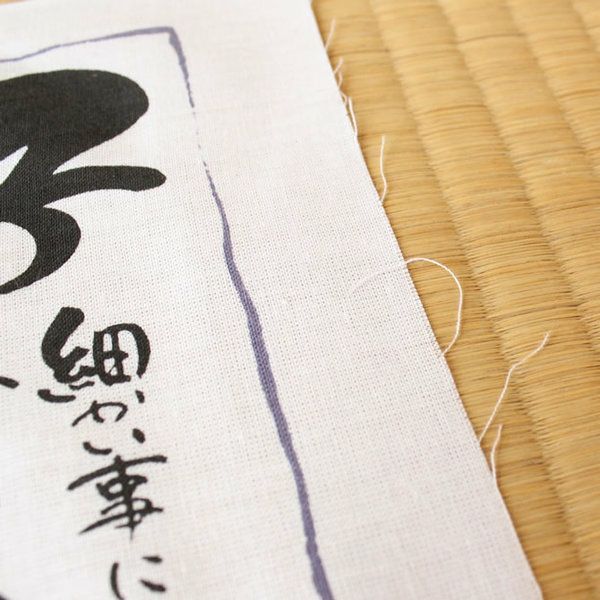 細かい事に